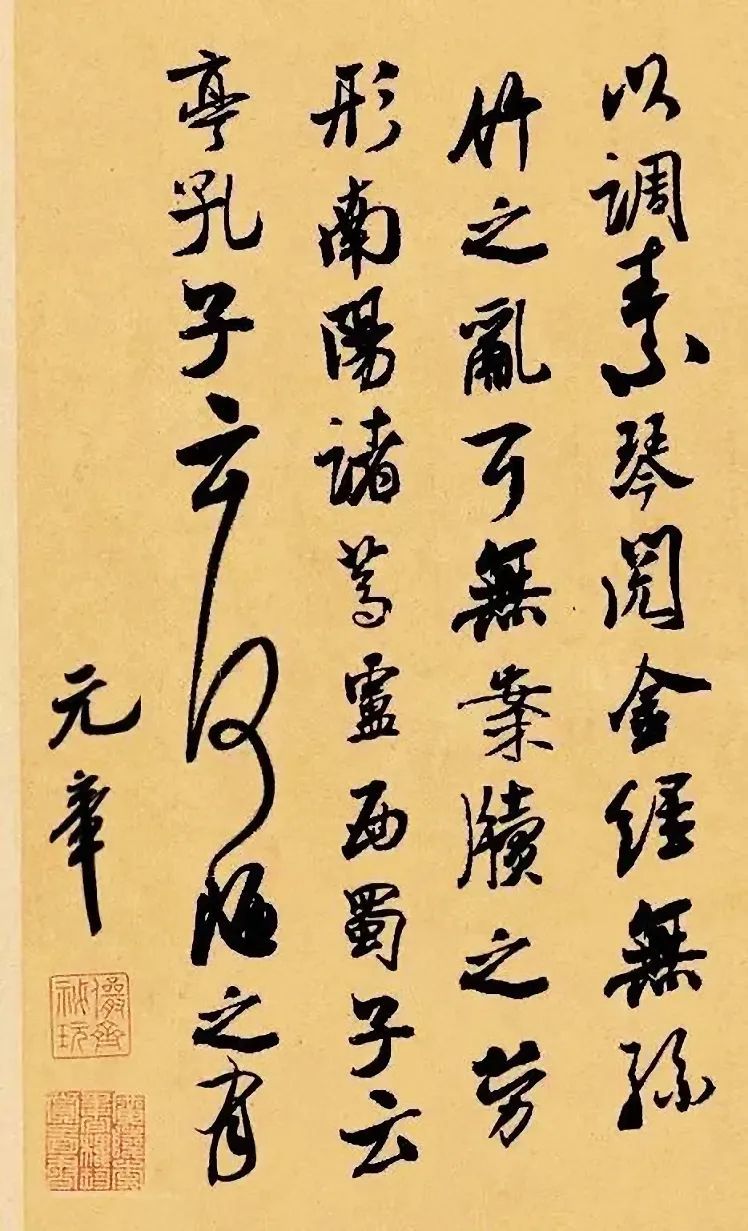 以調素琴閱金經無絲
竹之亂耳無案牘之勞
形南陽諸葛盧西蜀子云
亭孔子云何陋之有
元章
儼齋
秘玩